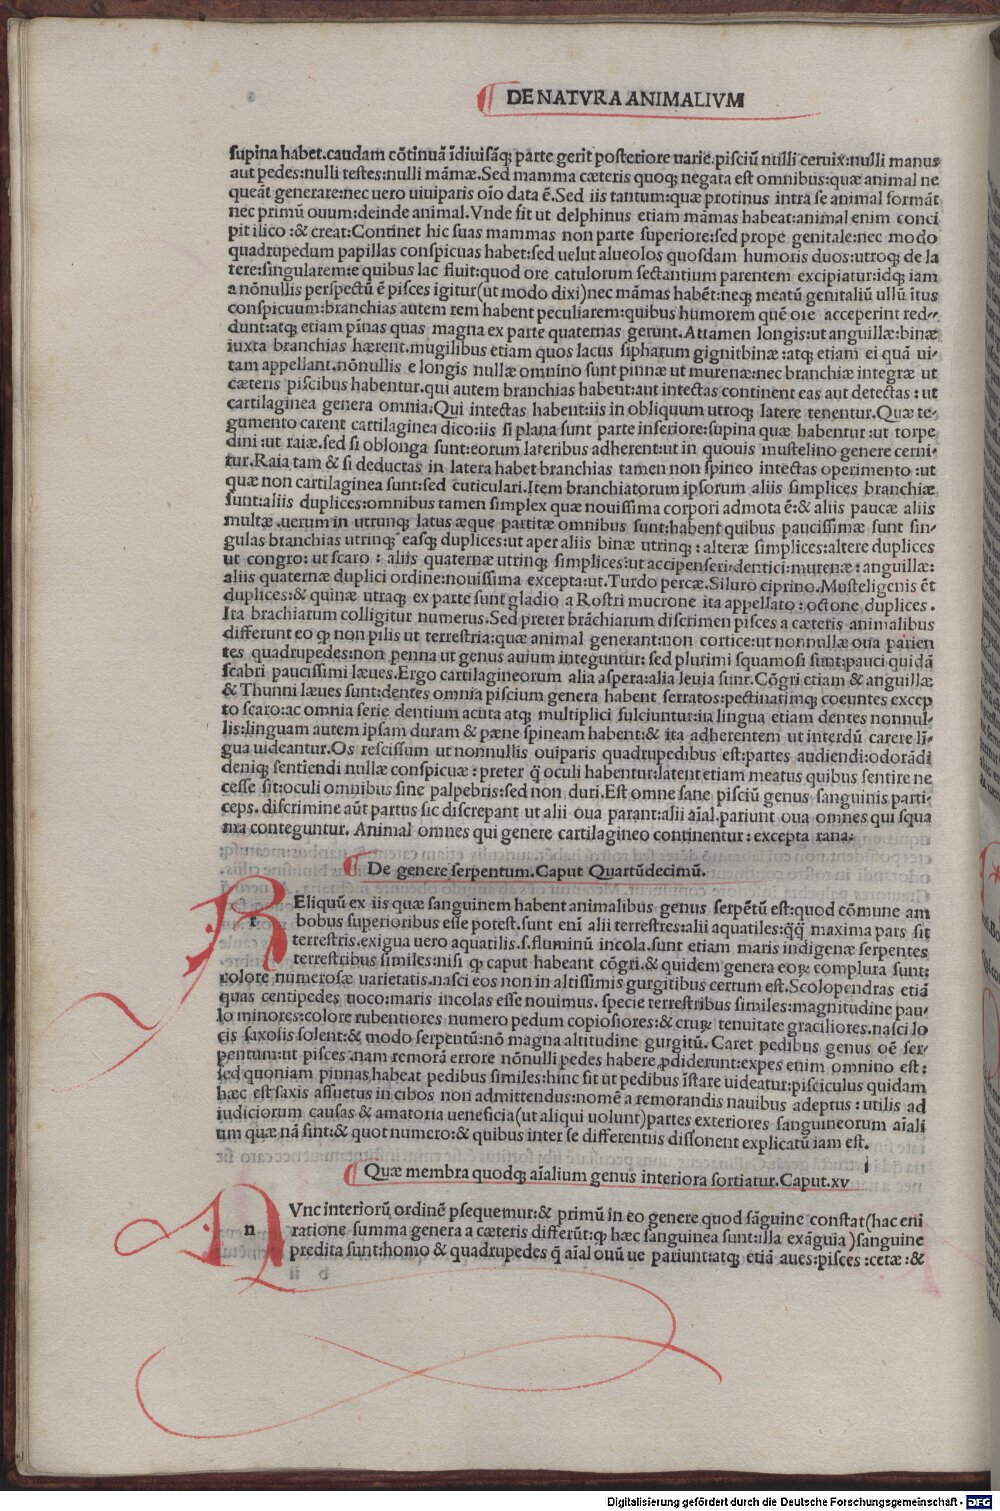 DE NATVRA ANIMALIVM
supina habet.caudam cõtinuã ĩdiuisãq; parte gerit posteriore uarie.pisciũ nulli ceruix:nulli manus
aut pedes:nulli testes:nulli mãmæ.Sed mamma cæteris quoq; negata est omnibus:quæ animal ne
queãt generare:nec uero uiuiparis oĩo data ẽ.Sed iis tantum:quæ protinus intra se animal formãt
nec primũ ouum:deinde animal.Vnde fit ut delphinus etiam mãmas habeat:animal enim conci
pit ilico :& creat:Continet hic suas mammas non parte superiore:sed prope genitale:nec modo
quadrupedum papillas conspicuas habet:sed uelut alueolos quosdam humoris duos:utroq; de la
tere:singularem:e quibus lac fluit:quod ore catulorum sectantium parentem excipiatur:idq; iam
a nõnullis perspectũ ẽ pisces igitur(ut modo dixi)nec mãmas habẽt:neq; meatũ genitaliũ ullũ ĩtus
conspicuum:branchias autem rem habent peculiarem:quibus humorem quẽ ore acceperint red-
dunt:atq; etiam pĩnas quas magna ex parte quaternas gerunt.Attamen longis:ut anguillæ:binæ
iuxta branchias hærent.mugilibus etiam quos lacus sipharum gignit binæ :atq; etiam ei quã ui-
tam appellant.nõnullis e longis nullæ omnino sunt pinnæ ut murenæ:nec branchiæ integræ ut
cæteris piscibus habentur.qui autem branchias habent:aut intectas continent eas aut detectas : ut
cartilaginea genera omnia.Qui intectas habent:iis in obliquum utroq; latere tenentur.Quæ te-
gumento carent cartilaginea dico:iis si plana sunt parte inferiore:supina quæ habentur :ut torpe
dini :ut raiæ.sed si oblonga sunt:eorum lateribus adherent:ut in quouis mustelino genere cerni-
tur.Raia tam & si deductas in latera habet branchias tamen non spineo intectas operimento :ut
quæ non cartilaginea sunt:sed cuticulari.Item branchiatorum ipsorum aliis simplices branchiæ
sunt:aliis duplices:omnibus tamen simplex quæ nouissima corpori admota ẽ:& aliis paucæ aliis
multæ .uerum in utrunq; latus æque partitæ omnibus sunt:habent quibus paucissimæ sunt sin-
gulas branchias utrinq; easq; duplices:ut aper aliis binæ utrinq; : alteræ simplices:altere duplices
ut congro: ut scaro : aliis quaternæ utrinq; simplices:ut accipenseri.dentici:murenæ: anguillæ:
aliis quaternæ duplici ordine:nouissima excepta:ut.Turdo percæ.Siluro ciprino.Musteligenis ẽt
duplices:& quinæ utraq; ex parte sunt gladio a Rostri mucrone ita appellato : octone duplices.
Ita brachiarum colligitur numerus.Sed preter brãchiarum discrimen pisces a cæteris animalibus
differunt eo ꝙ non pilis ut terrestria:quæ animal generant:non cortice:ut nonnullæ oua parien
tes quadrupedes:non penna ut genus auium integuntur: sed plurimi squamosi sunt:pauci quidã
scabri paucissimi læues.Ergo cartilagineorum alia aspera:alia leuia sunt.Cõgri etiam & anguillæ
& Thunni læues sunt:dentes omnia piscium genera habent serratos:pectinatimq; coeuntes excep
to scaro:ac omnia serie dentium acuta atq; multiplici fulciuntur:in lingua etiam dentes nonnul-
lis:linguam autem ipsam duram & pæne spineam habent:& ita adherentem ut interdũ carere lĩ-
gua uideantur.Os rescissum ut nonnullis ouiparis quadrupedibus est:partes audiendi:odorãdi
deniq; sentiendi nullæ conspicuæ : preter q̃ oculi habentur:latent etiam meatus quibus sentire ne
cesse sit:oculi omnibus sine palpebris:sed non duri.Est omne sane pisciũ genus sanguinis parti-
ceps. discrimine aũt partus sic discrepant ut alii oua parant:alii aĩal.pariunt oua omnes qui squa
ma conteguntur. Animal omnes qui genere cartilagineo continentur : excepta rana.
De genere serpentum.Caput Quartũdecimũ.
r
REliquũ ex iis quæ sanguinem habent animalibus genus serpẽtũ est:quod cõmune am
bobus superioribus esse potest.sunt enĩ alii terrestres:alii aquatiles:q̃q̃ maxima pars sit
terrestris.exigua uero aquatilis.s.fluminũ incola.sunt etiam maris indigenæ serpentes
terrestribus similes:nisi ꝙ caput habeant cõgri.& quidem genera eoꝝ complura sunt:
colore numerosæ uarietatis.nasci eos non in altissimis gurgitibus certum est.Scolopendras etiã
quas centipedes uoco:maris incolas esse nouimus. specie terrestribus similes:magnitudine pau-
lo minores:colore rubentiores numero pedum copiosiores:& cruꝝ tenuitate graciliores.nasci lo
cis saxosis solent:& modo serpentũ:nõ magna altitudine gurgitũ. Caret pedibus genus oẽ ser-
pentum:ut pisces .nam remorã errore nõnulli pedes habere ꝓdiderunt:expes enim omnino est:
sed quoniam pinnas habeat pedibus similes:hinc fit ut pedibus ĩstare uideatur:pisciculus quidam
hæc est saxis assuetus in cibos non admittendus:nomẽ a remorandis nauibus adeptus : utilis ad
iudiciorum causas & amatoria ueneficia(ut aliqui uolunt)partes exteriores sanguineorum aĩali
um quæ nã sint:& quot numero:& quibus inter se differentiis dissonent explicatũ iam est.
Quæ membra quodq; aĩalium genus interiora sortiatur.Caput.xv
n
NVnc interiorũ ordinẽ ꝓsequemur:& primũ in eo genere quod sãguine constat(hac enĩ
ratione summa genera a cæteris differũt:ꝙ hæc sanguinea sunt:illa exãguia)sanguine
predita sunt:homo & quadrupedes q̃ aĩal ouũ ue pariunt:atq; etiã aues:pisces :cetæ :&
Digitalisierung gefördert durch die Deutsche Forschungsgemeinschaft - DFG